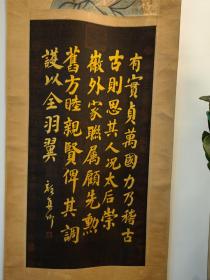 有實貞萬國力乃稽古
古則思其人況太后崇
徽外家聯屬顧先勲
舊方睦親賢俾其調
護以全羽翼